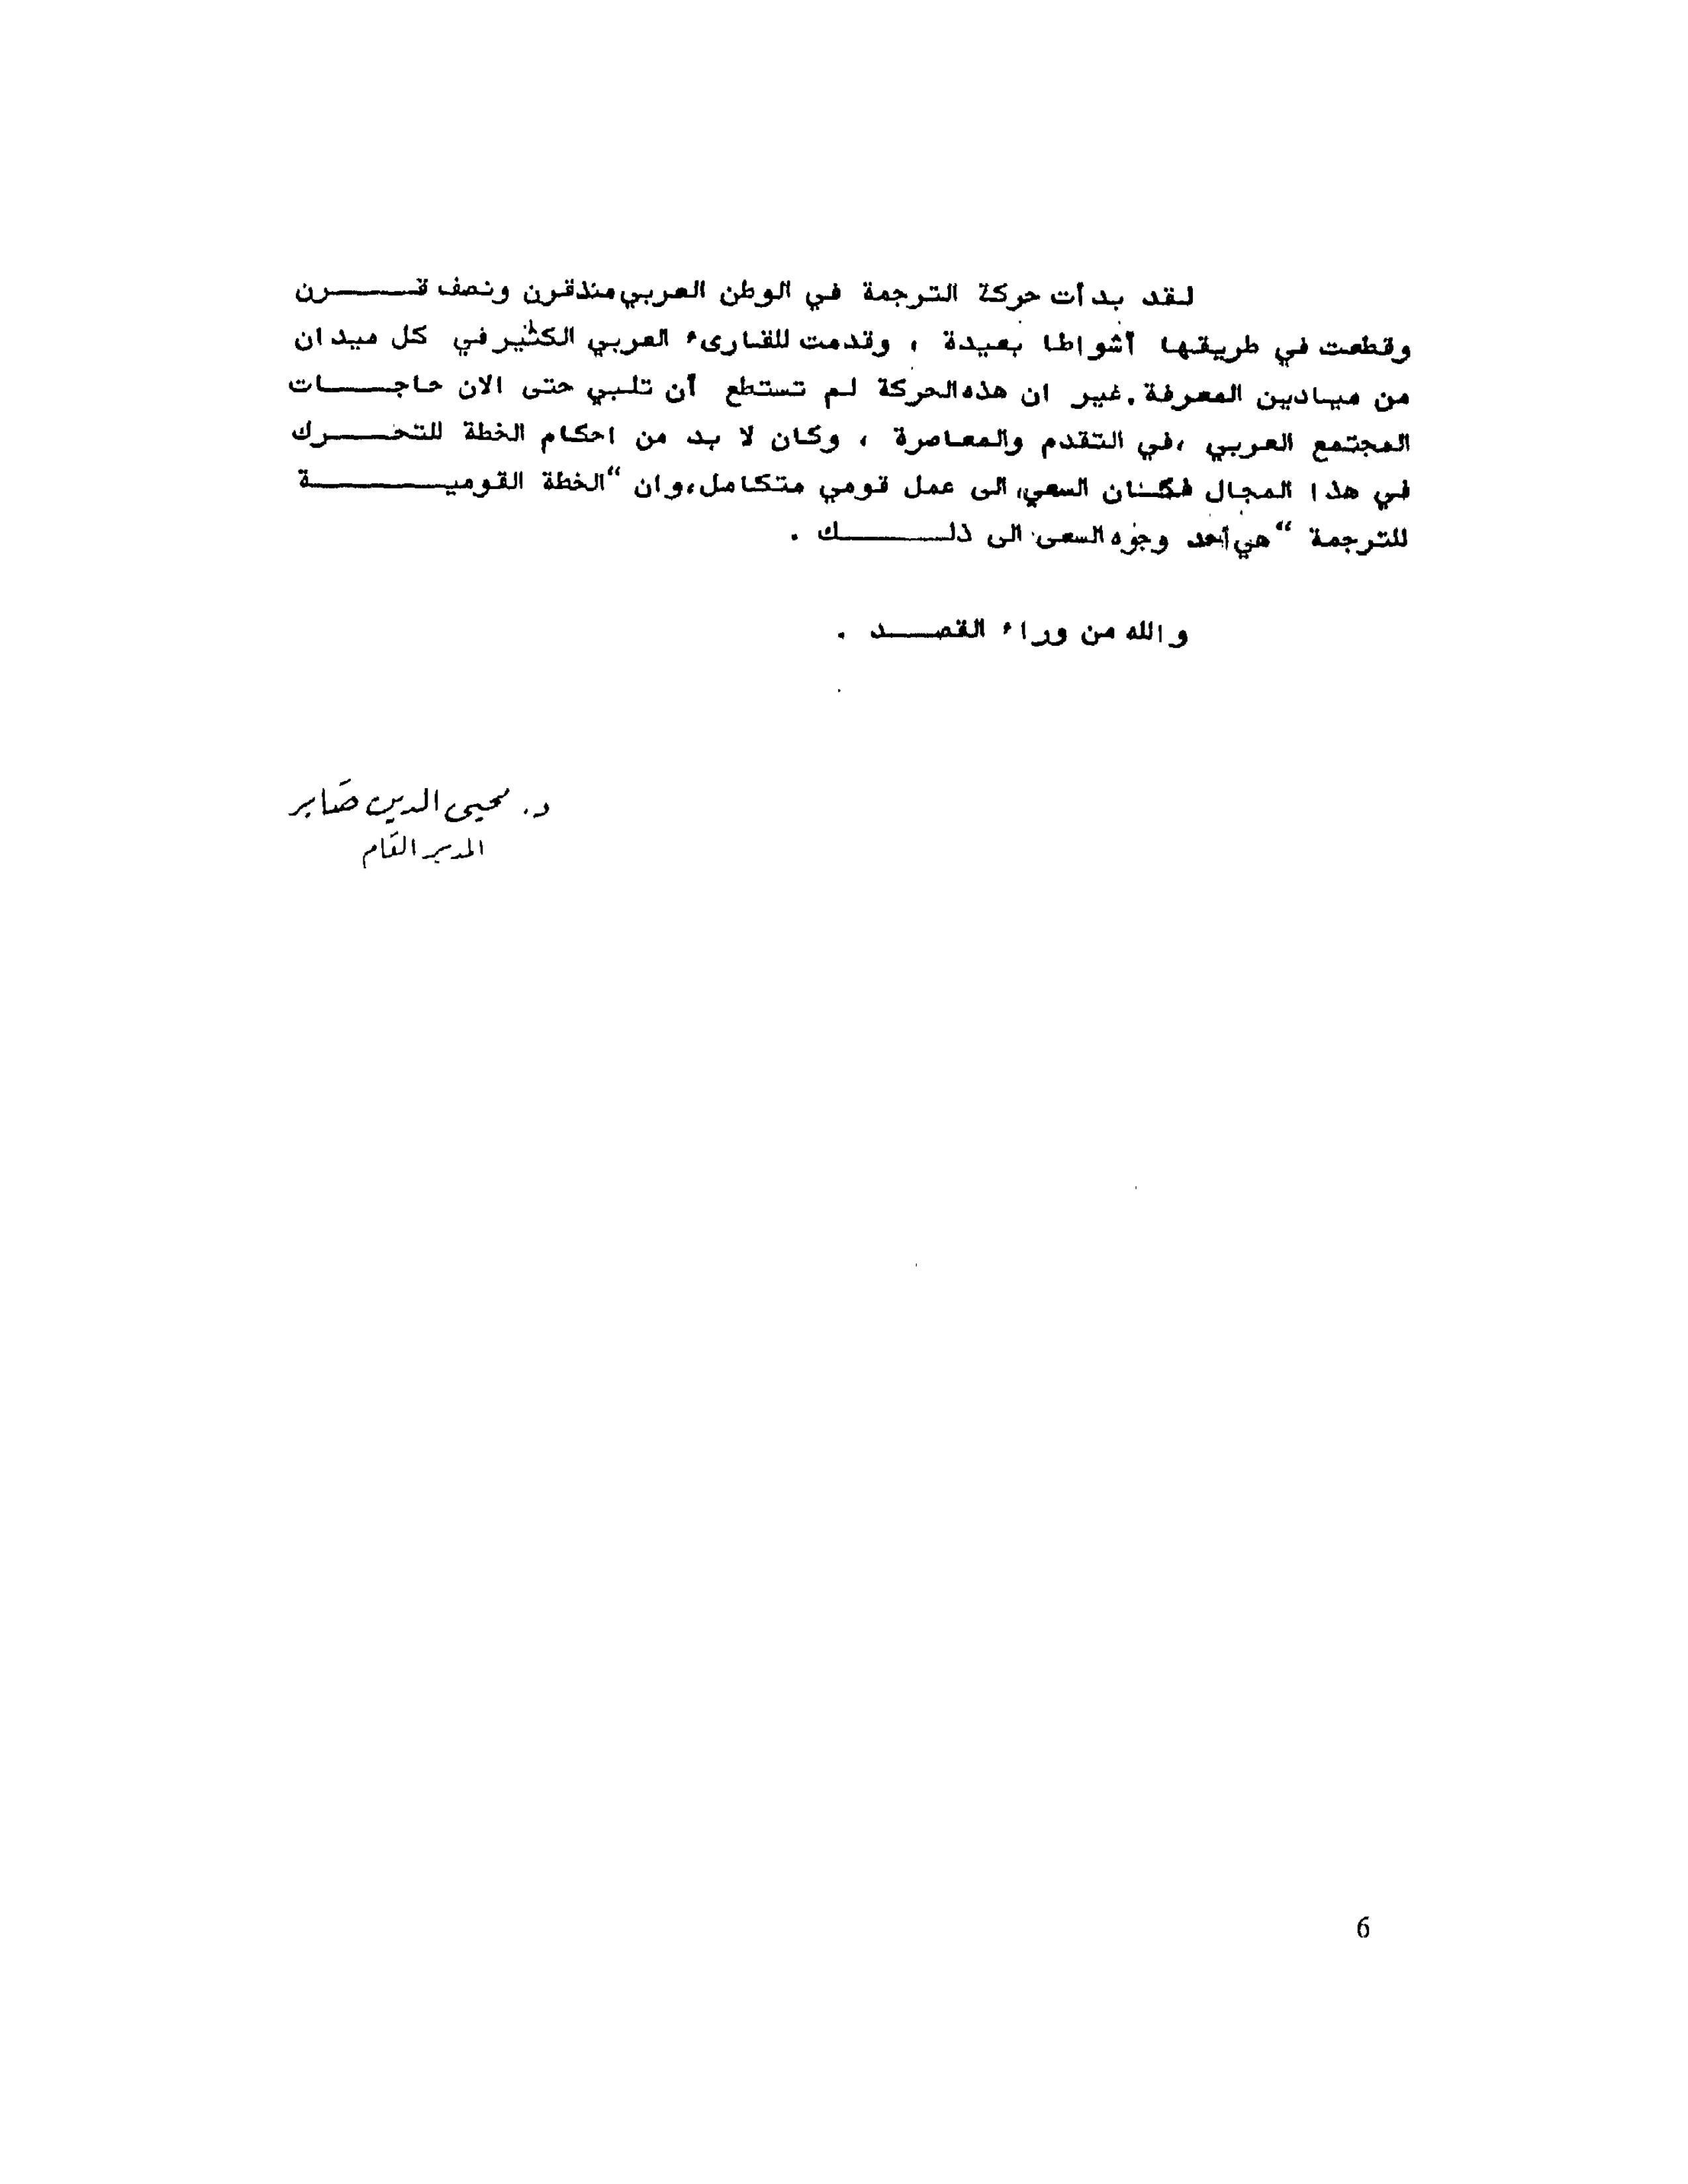 لقد بدأت حركة الترجمة في الوطن العربي منذقرن ونصف قـــــرن
وقطعت في طريقها أشواطا بعيدة ، وقدمت للقارىء العربي الكثير في كل ميدان
من ميادين المعرفة .غير ان هذه الحركة لم تستطع أن تلبي حتى الان حاجــــات
المجتمع العربي ،في التقدم والمعاصرة ، وكان لا بد من احكام الخطة للتحـــــرك
في هذا المجال فكـان السعي، الى عمل قومي متكامل،وان "الخطة القوميـــــــــة
للترجمة " هي أحد وجوه السعى الى ذلـــــــك .
والله من وراء القصـــد .
د. محيى الدين صَابر
المدير العَام
6